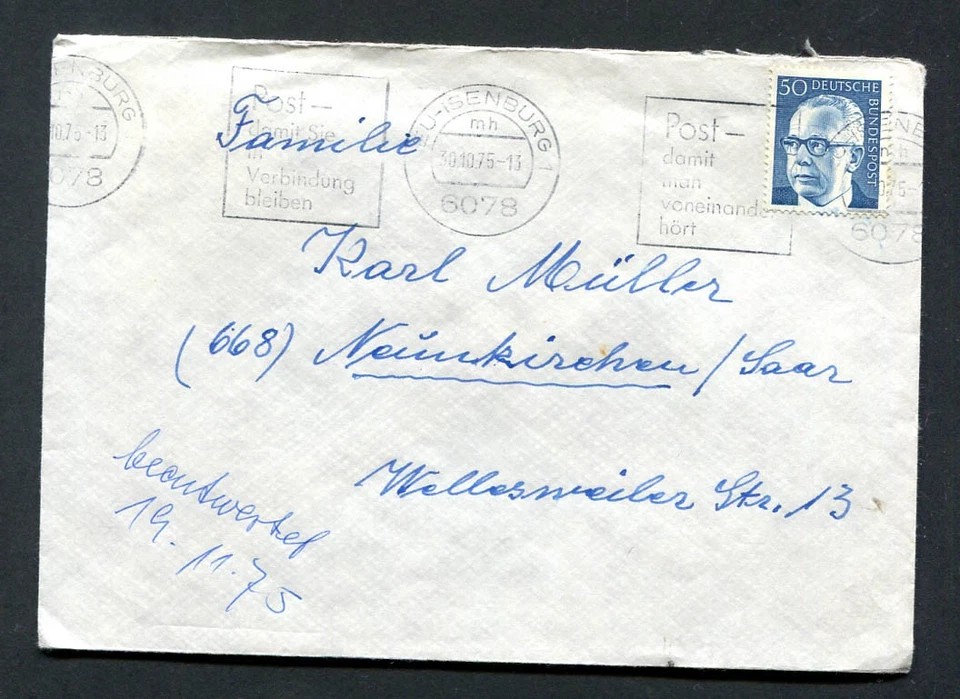 ISENBURG
10.75-13
6078
Post-
damit Sie
in
Verbindung
bleiben
NEU-ISENBURG 1
mh
30.10.75-13
6078
Post-
damit
man
voneinander
hört
50 DEUTSCHE
BUNDESPOST
mh
6078
Familie
Karl Müller
(668) Neunkirchen / Saar
Wellesweiler Str. 13
beantwortet
19. 11. 75